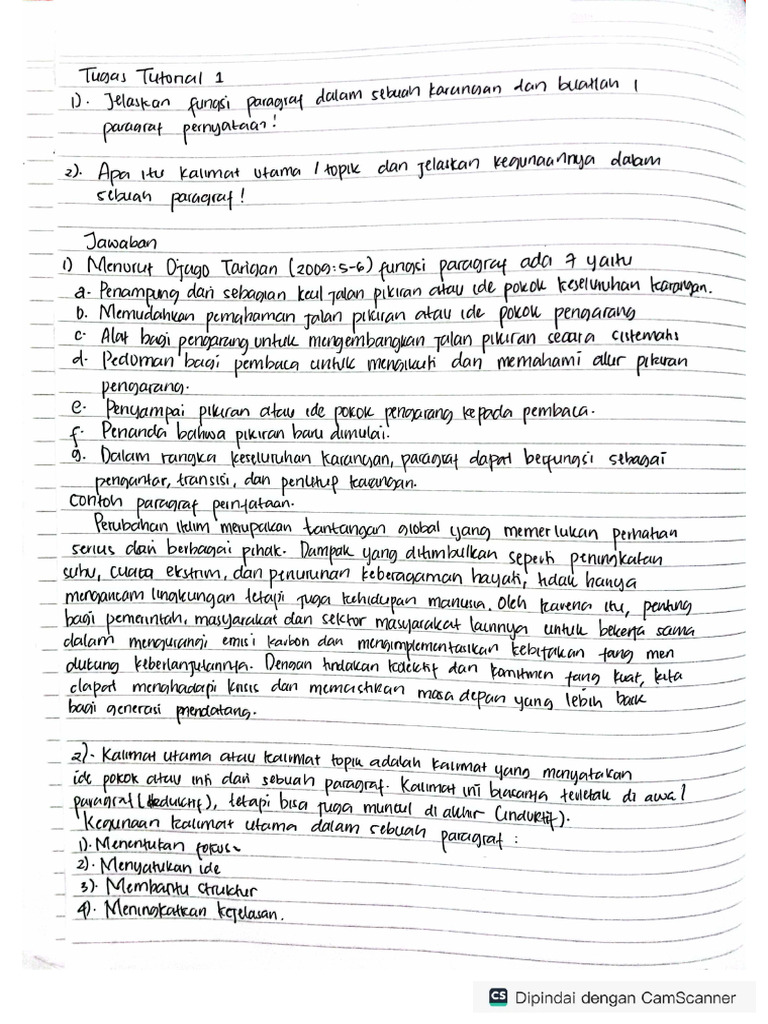 Tugas Tutorial 1
1). Jelaskan fungsi paragraf dalam sebuah karangan dan buatlah 1
paragraf pernyataan!
2). Apa itu kalimat utama / topik dan jelaskan kegunaannya dalam
sebuah paragraf!
Jawaban
1) Menurut Djago Tarigan (2009:5-6) fungsi paragraf ada 7 yaitu
a. Penampung dari sebagian kecil jalan pikiran atau ide pokok keseluruhan karangan.
b. Memudahkan pemahaman jalan pikiran atau ide pokok pengarang
c. Alat bagi pengarang untuk mengembangkan jalan pikiran secara sistematis
d. Pedoman bagi pembaca untuk mengikuti dan memahami alur pikiran
pengarang.
e. Penyampai pikiran atau ide pokok pengarang kepada pembaca.
f. Penanda bahwa pikiran baru dimulai.
g. Dalam rangka keseluruhan karangan, paragraf dapat berfungsi sebagai
pengantar, transisi, dan penutup karangan.
Contoh paragraf pernyataan.
Perubahan iklim merupakan tantangan global yang memerlukan perhatian
serius dari berbagai pihak. Dampak yang ditimbulkan seperti peningkatan
suhu, cuaca ekstrim, dan penurunan keberagaman hayati, tidak hanya
mengancam lingkungan tetapi juga kehidupan manusia. Oleh karena itu, penting
bagi pemerintah, masyarakat dan sektor masyarakat lainnya untuk bekerja sama
dalam mengurangi emisi karbon dan mengimplementasikan kebijakan yang men
dukung keberlanjutannya. Dengan tindakan kolektif dan komitmen yang kuat, kita
dapat menghadapi krisis dan memastikan masa depan yang lebih baik
bagi generasi mendatang.
2). Kalimat utama atau kalimat topik adalah kalimat yang menyatakan
ide pokok atau inti dari sebuah paragraf. Kalimat ini biasanya terletak di awal
paragraf (deduktif), tetapi bisa juga muncul di akhir (induktif).
Kegunaan kalimat utama dalam sebuah paragraf :
1). Menentukan fokus
2). Menyatukan ide
3). Membantu struktur
4). Meningkatkan kejelasan.
CS Dipindai dengan CamScanner